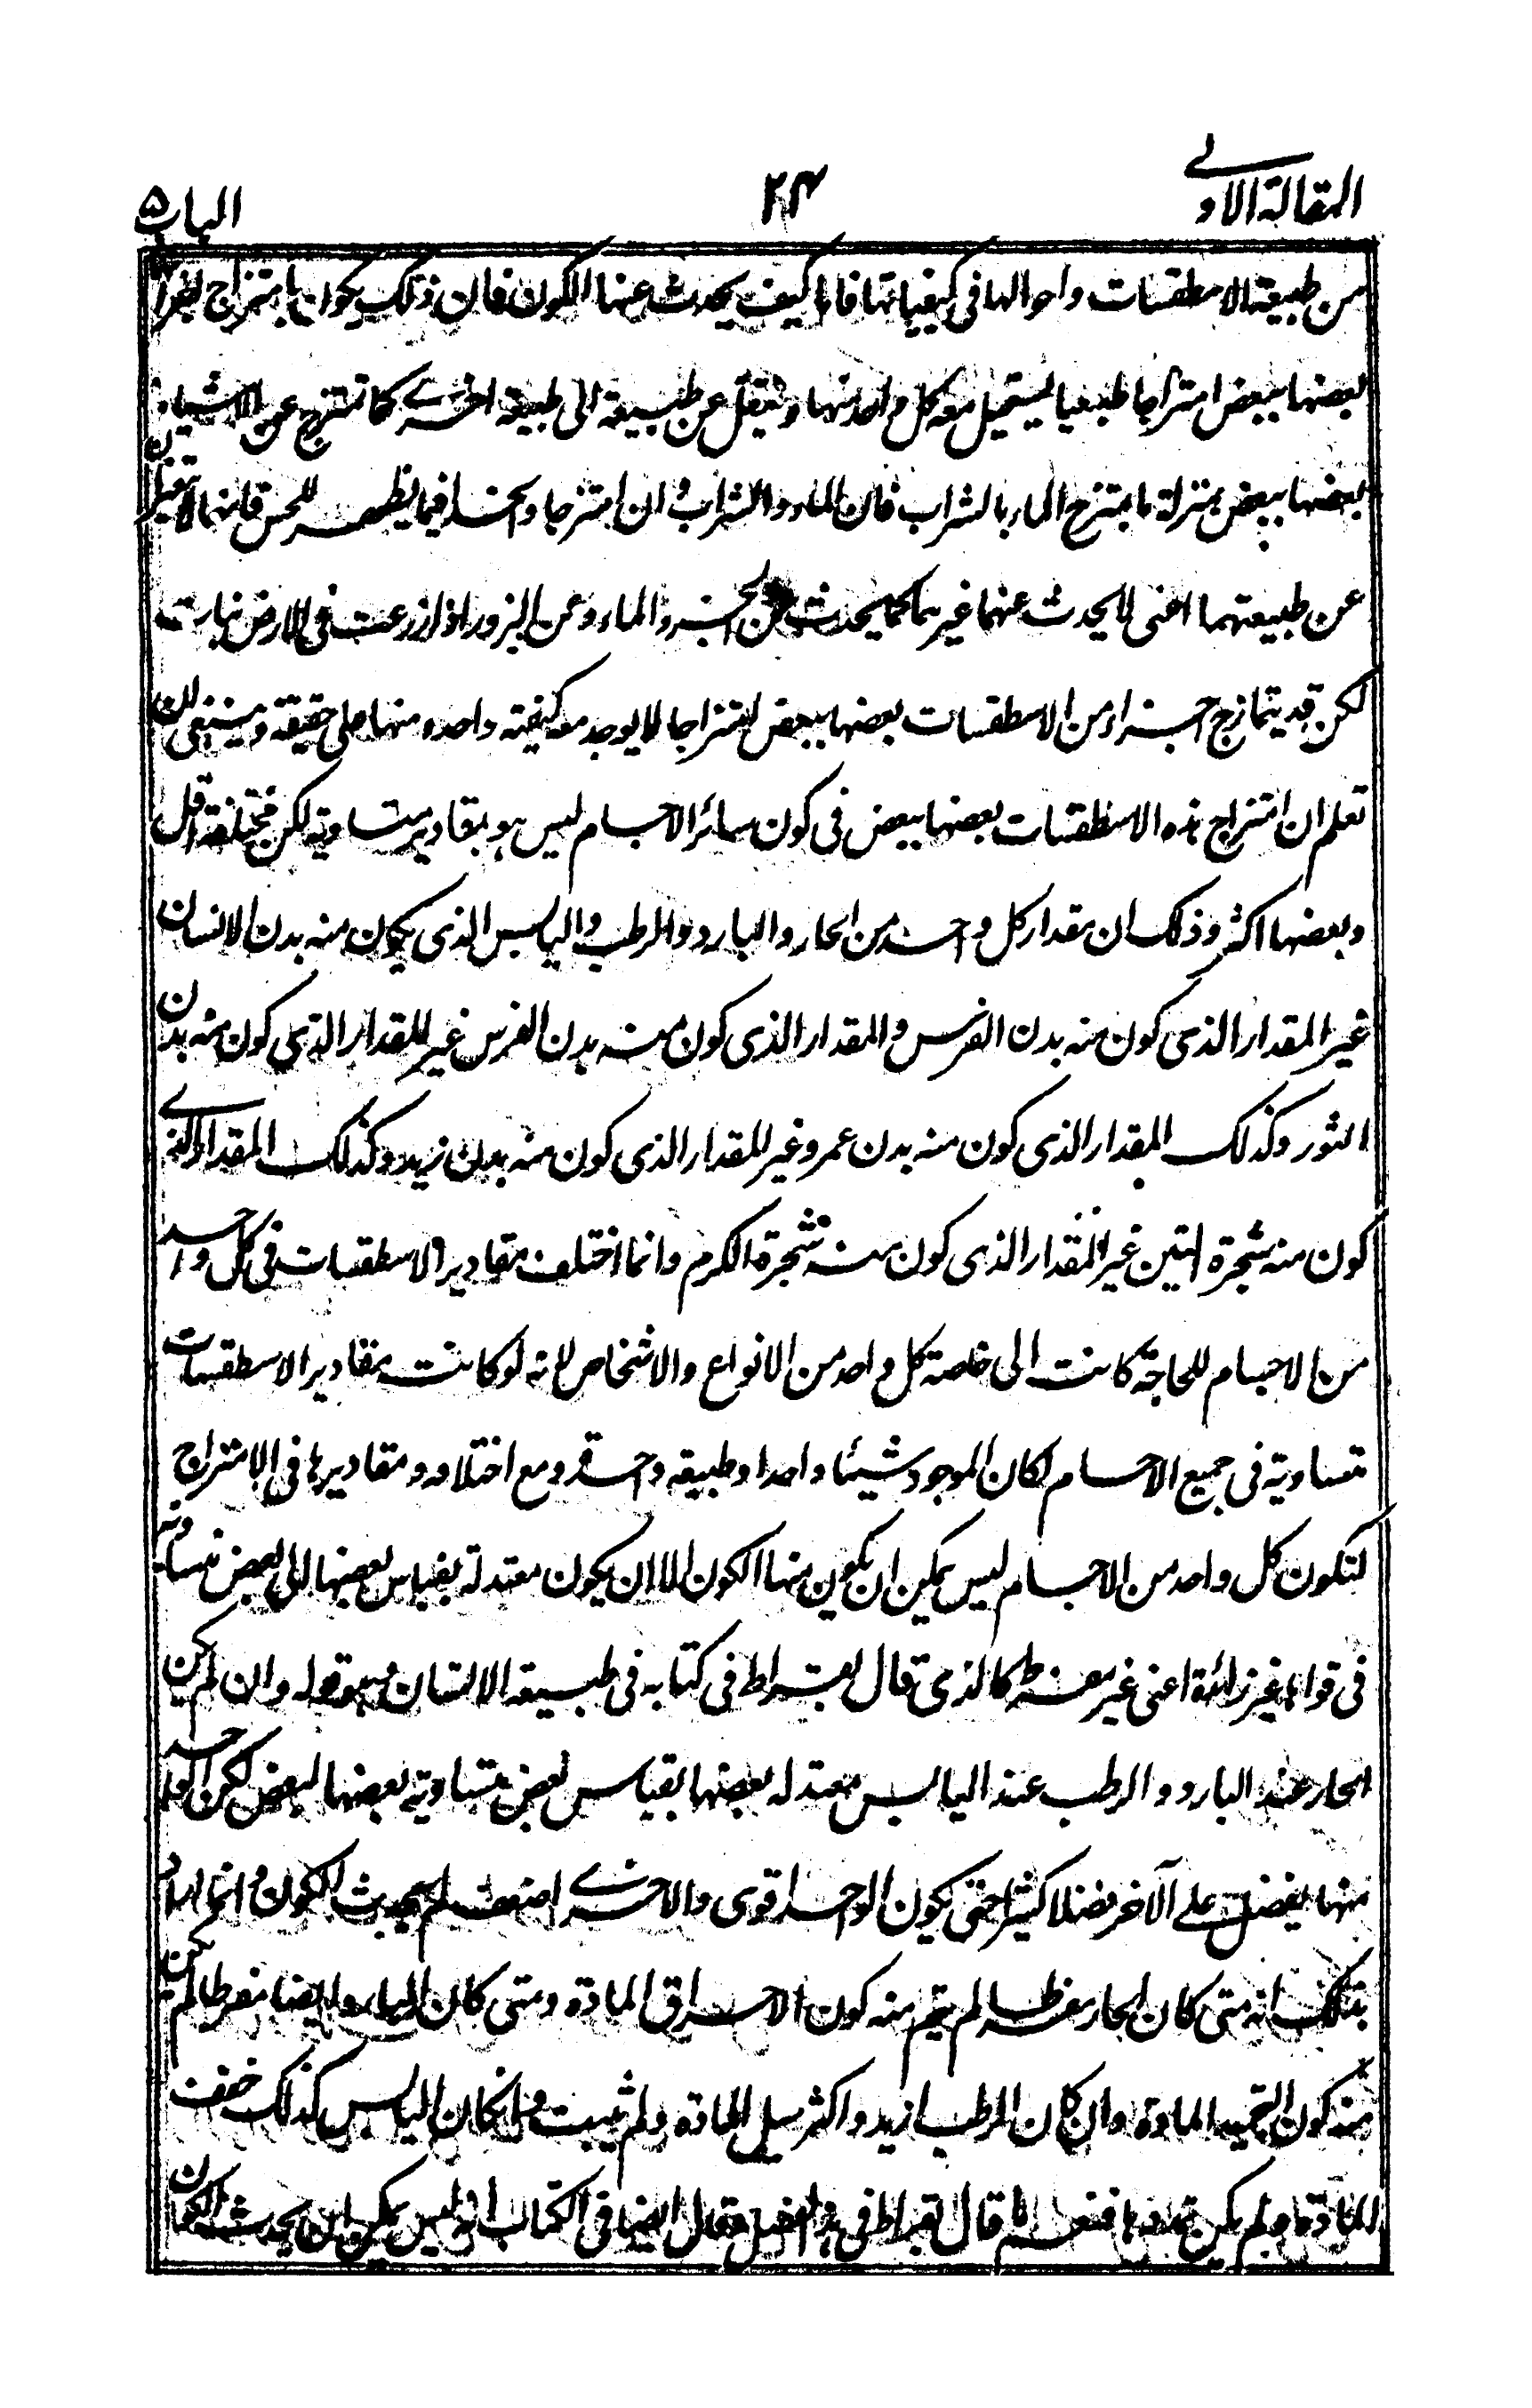 المقالة الاولے
۲۴
الباب ۵
من طبيعة الاسطقسات واحوالها فى كيفياتها فاما كيف يحدث عنها الكون فان ذلك يكون بامتزاج اجزا
بعضها ببعض امتزاجا طبعيا يستحيل معه كل واحد منها وينتقل عن طبيعة الى طبيعة اخرے كما تمتزج عن الاشياء
بعضها ببعض بمنزلة ما يمتزج الماء بالشراب فان الماء والشراب وان امتزجا واتحدا فيما يظهر للحس فانهما لا يتغيران
عن طبيعتهما اعنى لا يحدث عنهما غيرهما كما يحدث عن الخبز والماء وعن البزور اذا زرعت فى الارض نبات
لكن قد يتمازج اجزاء من الاسطقسات بعضها ببعض امتزاجا لا يوجد معه كيفية واحده منها على حقيقة وينبغى ان
تعلم ان امتزاج هذه الاسطقسات بعضها ببعض فى كون سائر الاجسام ليس هو بمقادير متساوية لكن مختلفة اقل
وبعضها اكثر وذلك ان مقدار كل واحد من الحار والبارد والرطب واليابس الذى يكون منه بدن الانسان
غير المقدار الذى كون منه بدن الفرس والمقدار الذى كون منه بدن الفرس غير المقدار الذى كون منه بدن
الثور وكذلك المقدار الذى كون منه بدن عمرو غير المقدار الذى كون منه بدن زيد وكذلك المقدار الذے
كون منه شجرة التين غير المقدار الذى كون منه شجرة الكرم وانما اختلف مقادير الاسطقسات فى كل واحد
من الاجسام للحاجة كانت الى خاصة كل واحد من الانواع والاشخاص لانه لو كانت مقادير الاسطقسات
متساوية فى جميع الاجسام لكان الموجود شيئا واحدا وطبيعه واحدة ومع اختلافه ومقاديرها فى الامتزاج
لتكون كل واحد من الاجسام ليس يمكن ان يكون منها الكون الا ان يكون معتدلة بقياس بعضها الى بعض متساوية
فى قواها غير زائدة اعنى غير مفرطة كالذى قال بقراط فى كتابه فى طبيعة الانسان وهو قوله وان لم يكن
الحار عند البارد والرطب عند اليابس معتدله بعضها بقياس بعض متساوية بعضها لبعض لكن الواحد
منها يفضل على الآخر فضلا كثيرا حتى يكون الواحد اقوى والاخرے اضعف لم يحدث الكون وانما اراد
بذلك انه متى كان الحار مفرطا لم يتم منه كون الاحراق المادة ومتى كان البارد ايضا مفرطا لم يكن
منه كون لتجميد المادة وان كان الرطب ازيد واكثر سيل المادة ولم يثبت وان كان اليابس كذلك خففت
المادة ولم يكن تمددها فنعم ما قال بقراط فى هذا الفصل وقال ايضا فى الكتاب انه ليس يمكن ان يحدث الكون